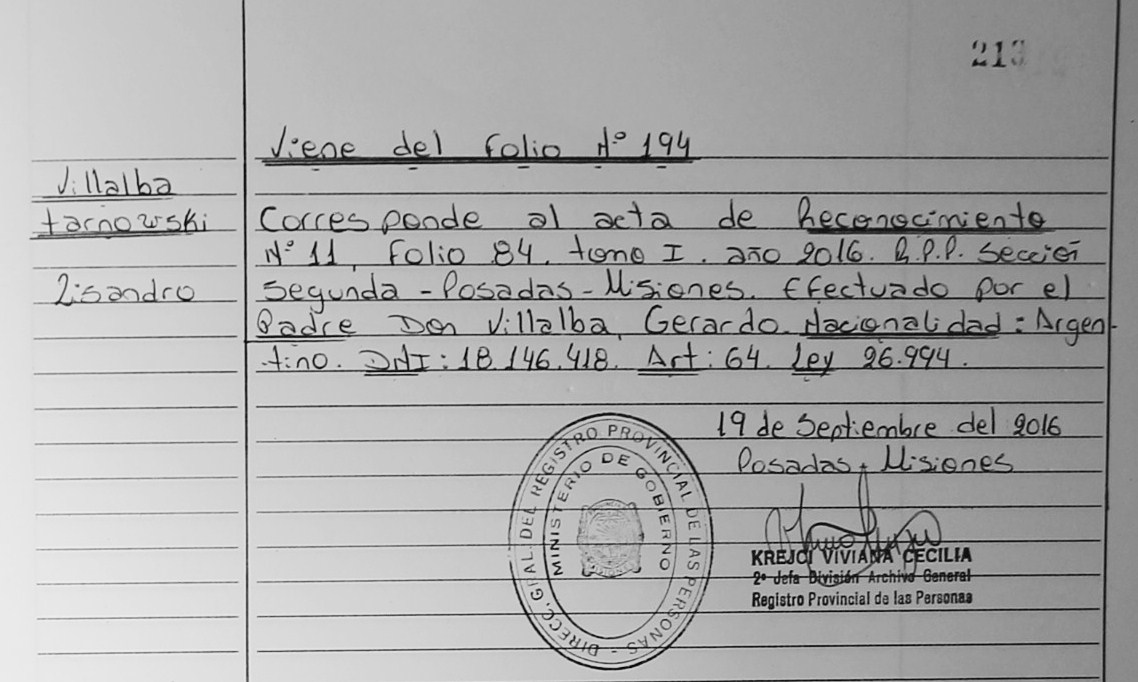 213
Viene del Folio Nº 194
Villalba
tarnowski
Lisandro
Corresponde al acta de Reconocimiento
Nº 11, Folio 84. tomo I. año 2016. R.P.P. Sección
Segunda - Posadas - Misiones. Efectuado por el
Padre Don Villalba, Gerardo. Nacionalidad: Argen-
tino. DNI: 18.146.418. Art: 64. Ley 26.994.
19 de Septiembre del 2016
Posadas, Misiones
DIRECC. GRAL. DEL REGISTRO PROVINCIAL DE LAS PERSONAS -
MINISTERIO DE GOBIERNO
KREJCI VIVIANA CECILIA
2º Jefa División Archivo General
Registro Provincial de las Personas